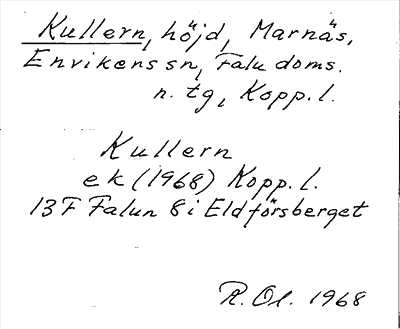 Kullern, höjd, Marnäs,
Envikens sn, Falu doms.
n. tg, Kopp. l.
Kullern
ek (1968) Kopp. l.
13 F Falun 8 i Eldförsberget
R. Ol. 1968